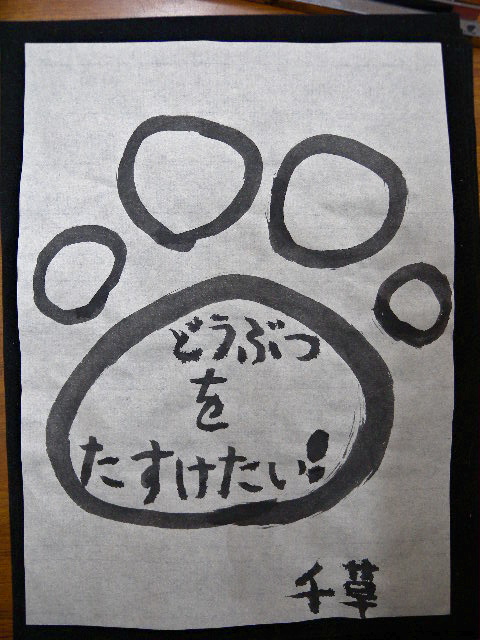 どうぶつ
を
たすけたい!
千草